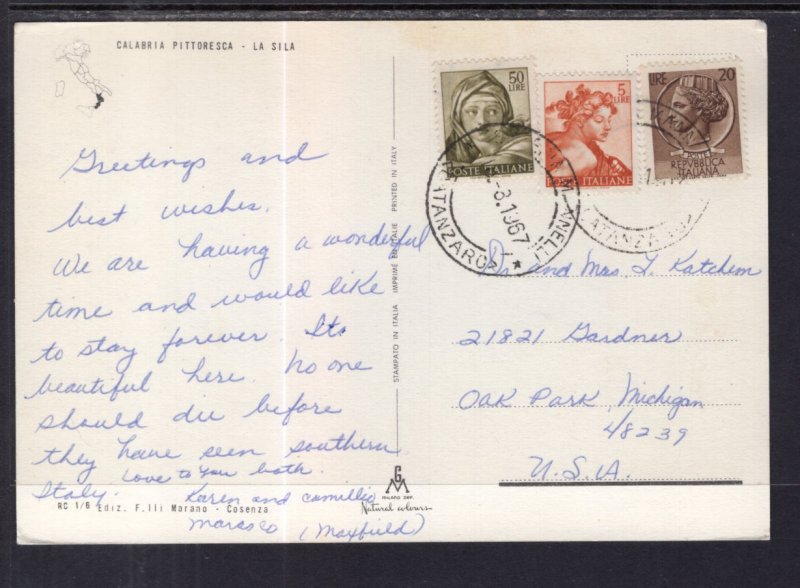 CALABRIA PITTORESCA - LA SILA
Greetings and
best wishes.
We are having a wonderful
time and would like
to stay forever. Its
beautiful here. No one
should die before
they have seen southern
Italy.
Love to you both.
Karen and Camillio
Marasco (Maxfield)
RC 1/6 Ediz. F.lli Marano - Cosenza
STAMPATO IN ITALIA IMPRIMÉ EN ITALIE PRINTED IN ITALY
GM
MILANO DEP.
Natural colours
50
LIRE
POSTE ITALIANE
5
LIRE
POSTE ITALIANE
LIRE 20
POSTE
REPVBBLICA
ITALIANA
MANELLI
(CATANZARO)
-8.1967
CATANZARO
Dr and Mrs. L Katchem
21821 Gardner
Oak Park, Michigan
48239
U.S.A.